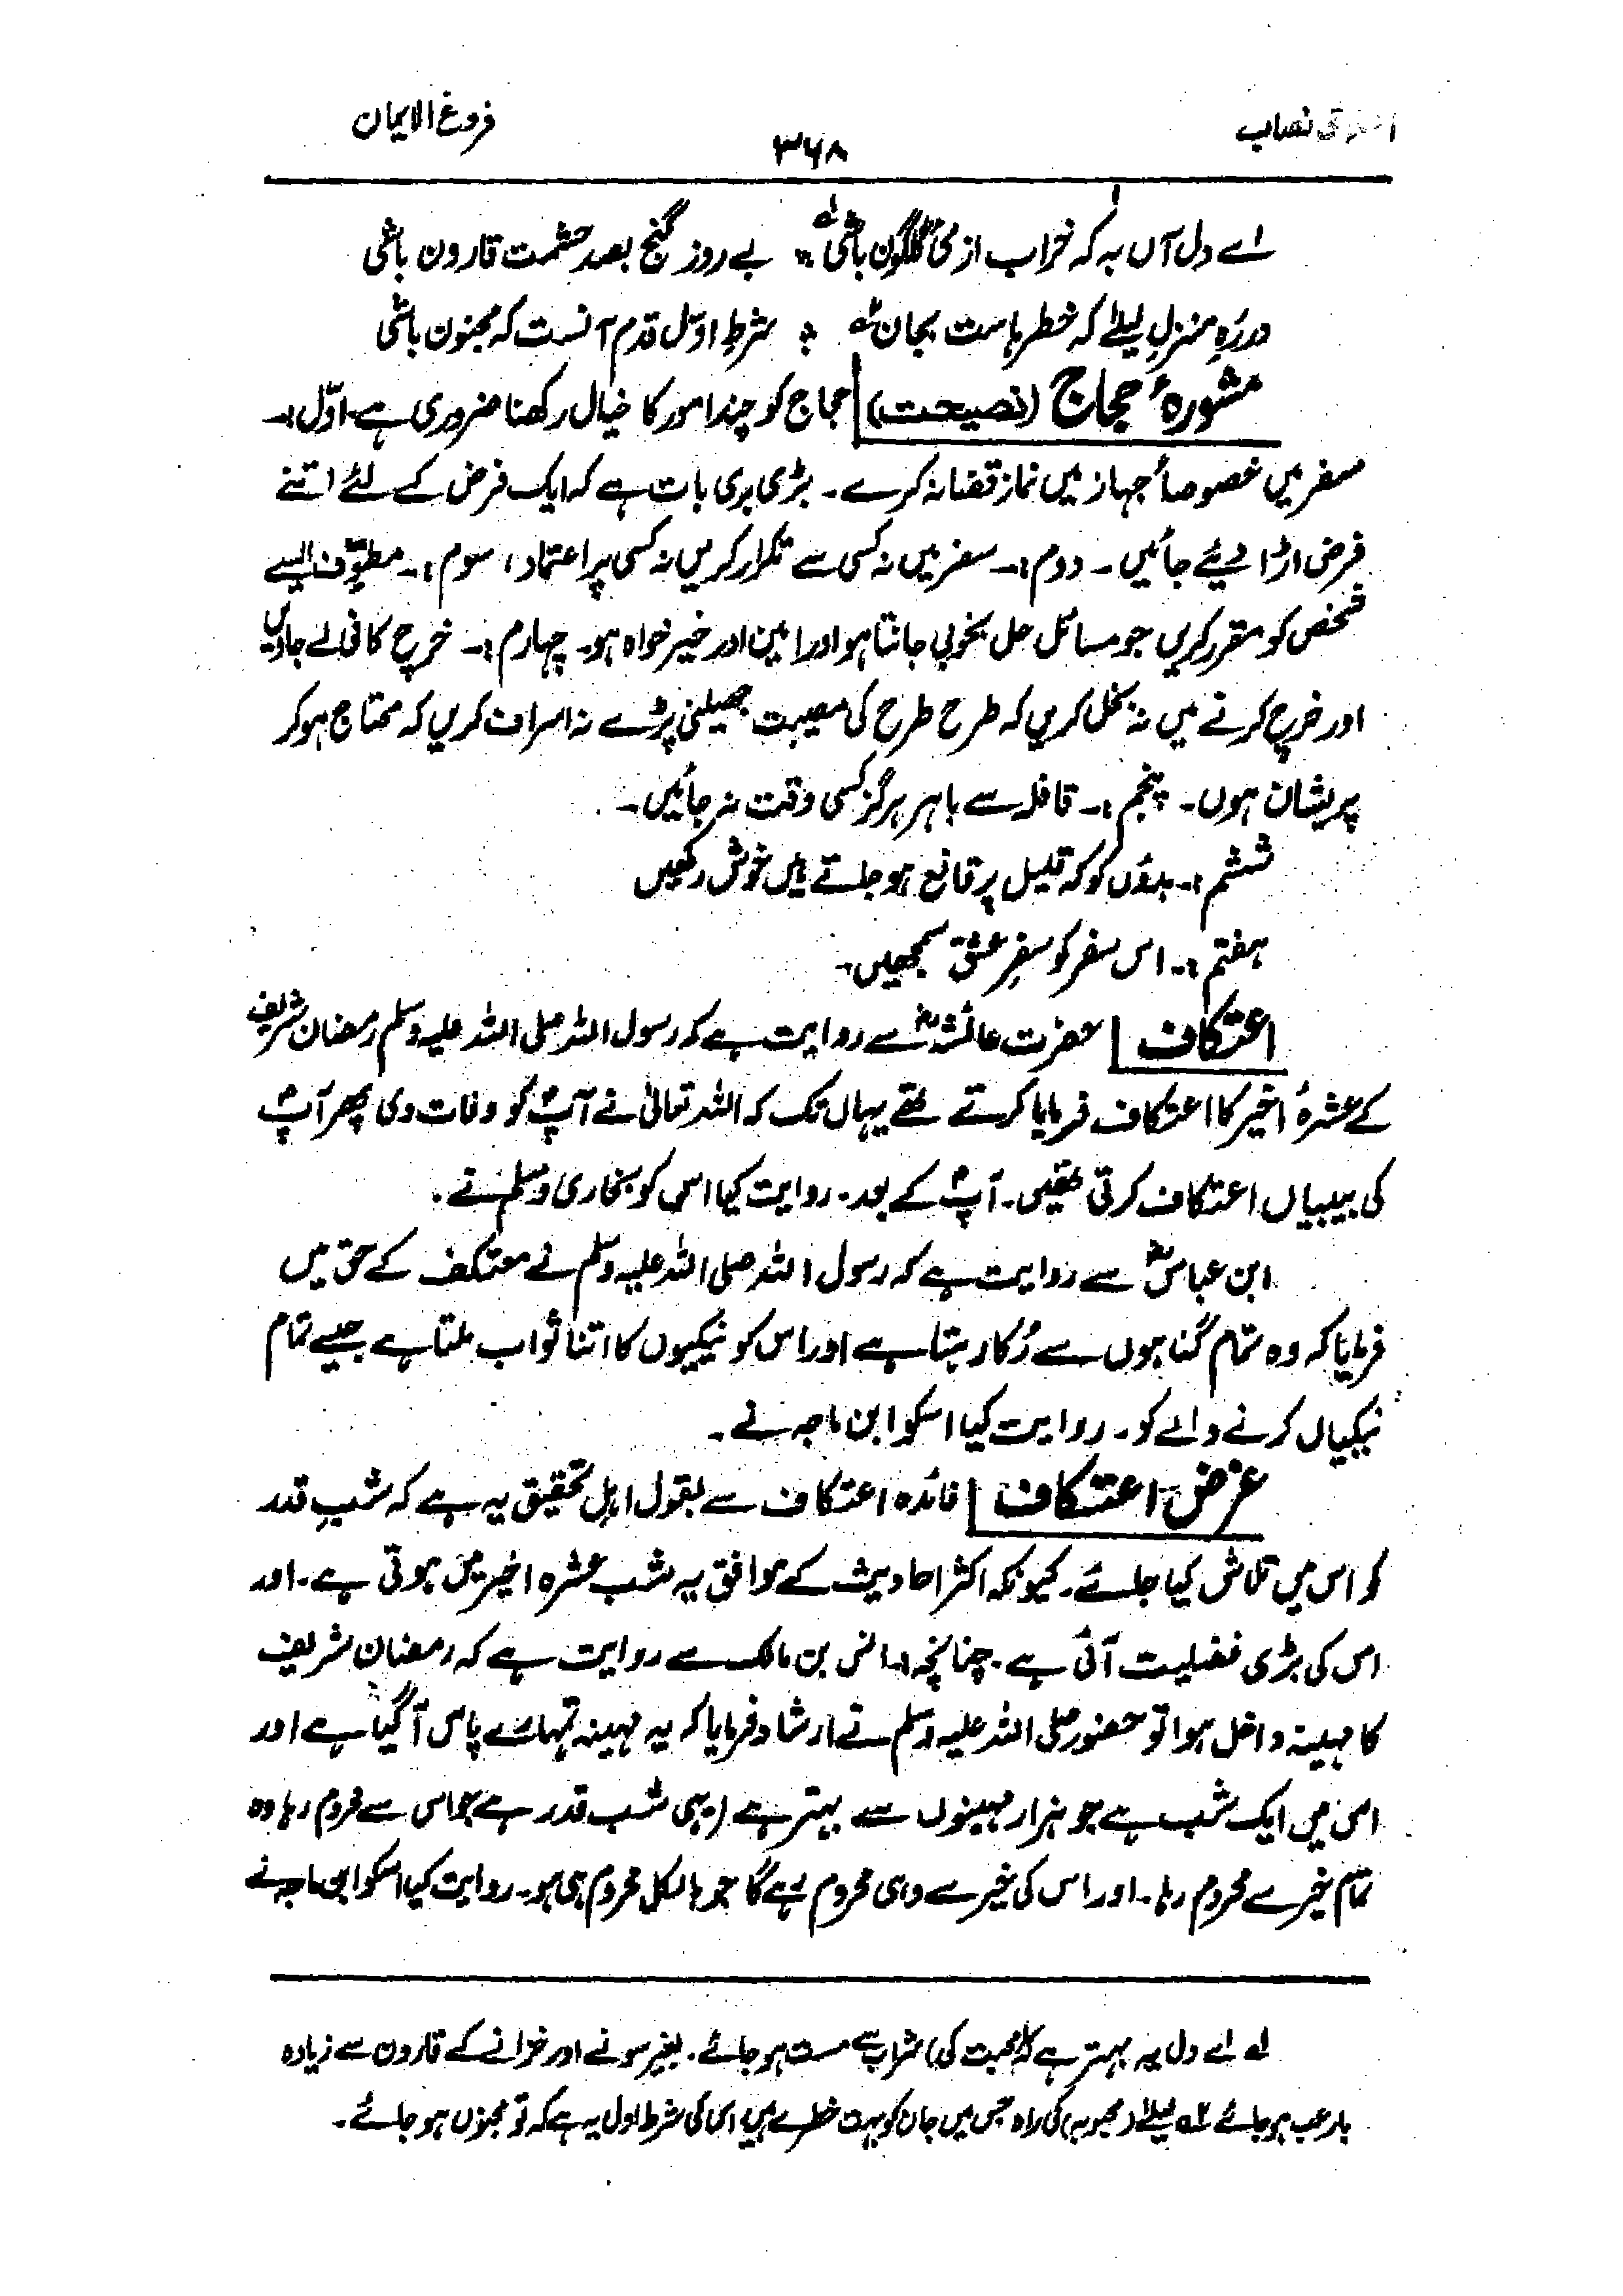 نصاب
۳۶۸
فروغ الایمان
اے دل آں بہ کہ خراب از مئ گلگون باشی لہ ؞ بے روز گنج بصد حشمت قارون باشی
در رہِ منزلِ لیلےٰ کہ خطرہاست بجان ٢ہ ؞ شرطِ اوّل قدم آنست کہ مجنون باشی
مشورۂ حجاج (نصیحت) حجاج کو چند امور کا خیال رکھنا ضروری ہے اوّل :۔
سفر میں خصوصاً جہاز میں نماز قضا نہ کرے ۔ بڑی بری بات ہے کہ ایک فرض کے لئے اتنے
فرض اڑا دیئے جائیں ۔ دوم :۔ سفر میں نہ کسی سے تکرار کریں نہ کسی پر اعتماد ، سوم :۔ مطوّف ایسے
شخص کو مقرر کریں جو مسائل حل بخوبی جانتا ہو اور امین اور خیر خواہ ہو ۔ چہارم :۔ خرچ کافی لے جاویں
اور خرچ کرنے میں نہ بخل کریں کہ طرح طرح کی مصیبت جھیلنی پڑے نہ اسراف کریں کہ محتاج ہو کر
پریشان ہوں ۔ پنجم :۔ قافلہ سے باہر ہرگز کسی وقت نہ جائیں ۔
ششم :۔ بدوُں کو کہ قلیل پر قانع ہو جاتے ہیں خوش رکھیں
ہفتم :۔ اس سفر کو سفرِ عشق سمجھیں ۔
اعتکاف حضرت عائشہؓ سے روایت ہے کہ رسول اللہ صلی اللہ علیہ وسلم رمضان شریف
کے عشرۂ اخیر کا اعتکاف فرمایا کرتے تھے یہاں تک کہ اللہ تعالیٰ نے آپؐ کو وفات دی پھر آپؐ
کی بیبیاں اعتکاف کرتی تھیں ۔ آپؐ کے بعد ۔ روایت کیا اس کو بخاری و مسلم نے ۔
ابن عباسؓ سے روایت ہے کہ رسول اللہ صلی اللہ علیہ وسلم نے معتکف کے حق میں
فرمایا کہ وہ تمام گناہوں سے رُکا رہتا ہے اور اس کو نیکیوں کا اتنا ثواب ملتا ہے جیسے تمام
نیکیاں کرنے والے کو ۔ روایت کیا اسکو ابن ماجہ نے ۔
غرضِ اعتکاف فائدہ اعتکاف سے بقول اہل تحقیق یہ ہے کہ شبِ قدر
کو اس میں تلاش کیا جائے ۔ کیونکہ اکثر احادیث کے موافق یہ شب عشرہ اخیر میں ہوتی ہے ۔ اور
اس کی بڑی فضیلت آئی ہے ۔ چنانچہ :۔ انس بن مالک سے روایت ہے کہ رمضان شریف
کا مہینہ داخل ہوا تو حضور صلی اللہ علیہ وسلم نے ارشاد فرمایا کہ یہ مہینہ تمہارے پاس آگیا ہے اور
اس میں ایک شب ہے جو ہزار مہینوں سے بہتر ہے (یہی شب قدر ہے جو اس سے محروم رہا وہ
تمام خیر سے محروم رہا ۔ اور اس کی خیر سے وہی محروم رہے گا جو بالکل محروم ہی ہو ۔ روایت کیا اسکو ابن ماجہ نے
لہ اے دل یہ بہتر ہے کہ (محبت کی) شراب سے مست ہو جائے ۔ بغیر سونے اور خزانے کے قارون سے زیادہ
بارعب ہو جائے ٢ہ لیلےٰ (محبوبہ) کی راہ جس میں جان کو بہت خطرے ہیں اس کی شرط اول یہ ہے کہ تو مجنوں ہو جائے ۔